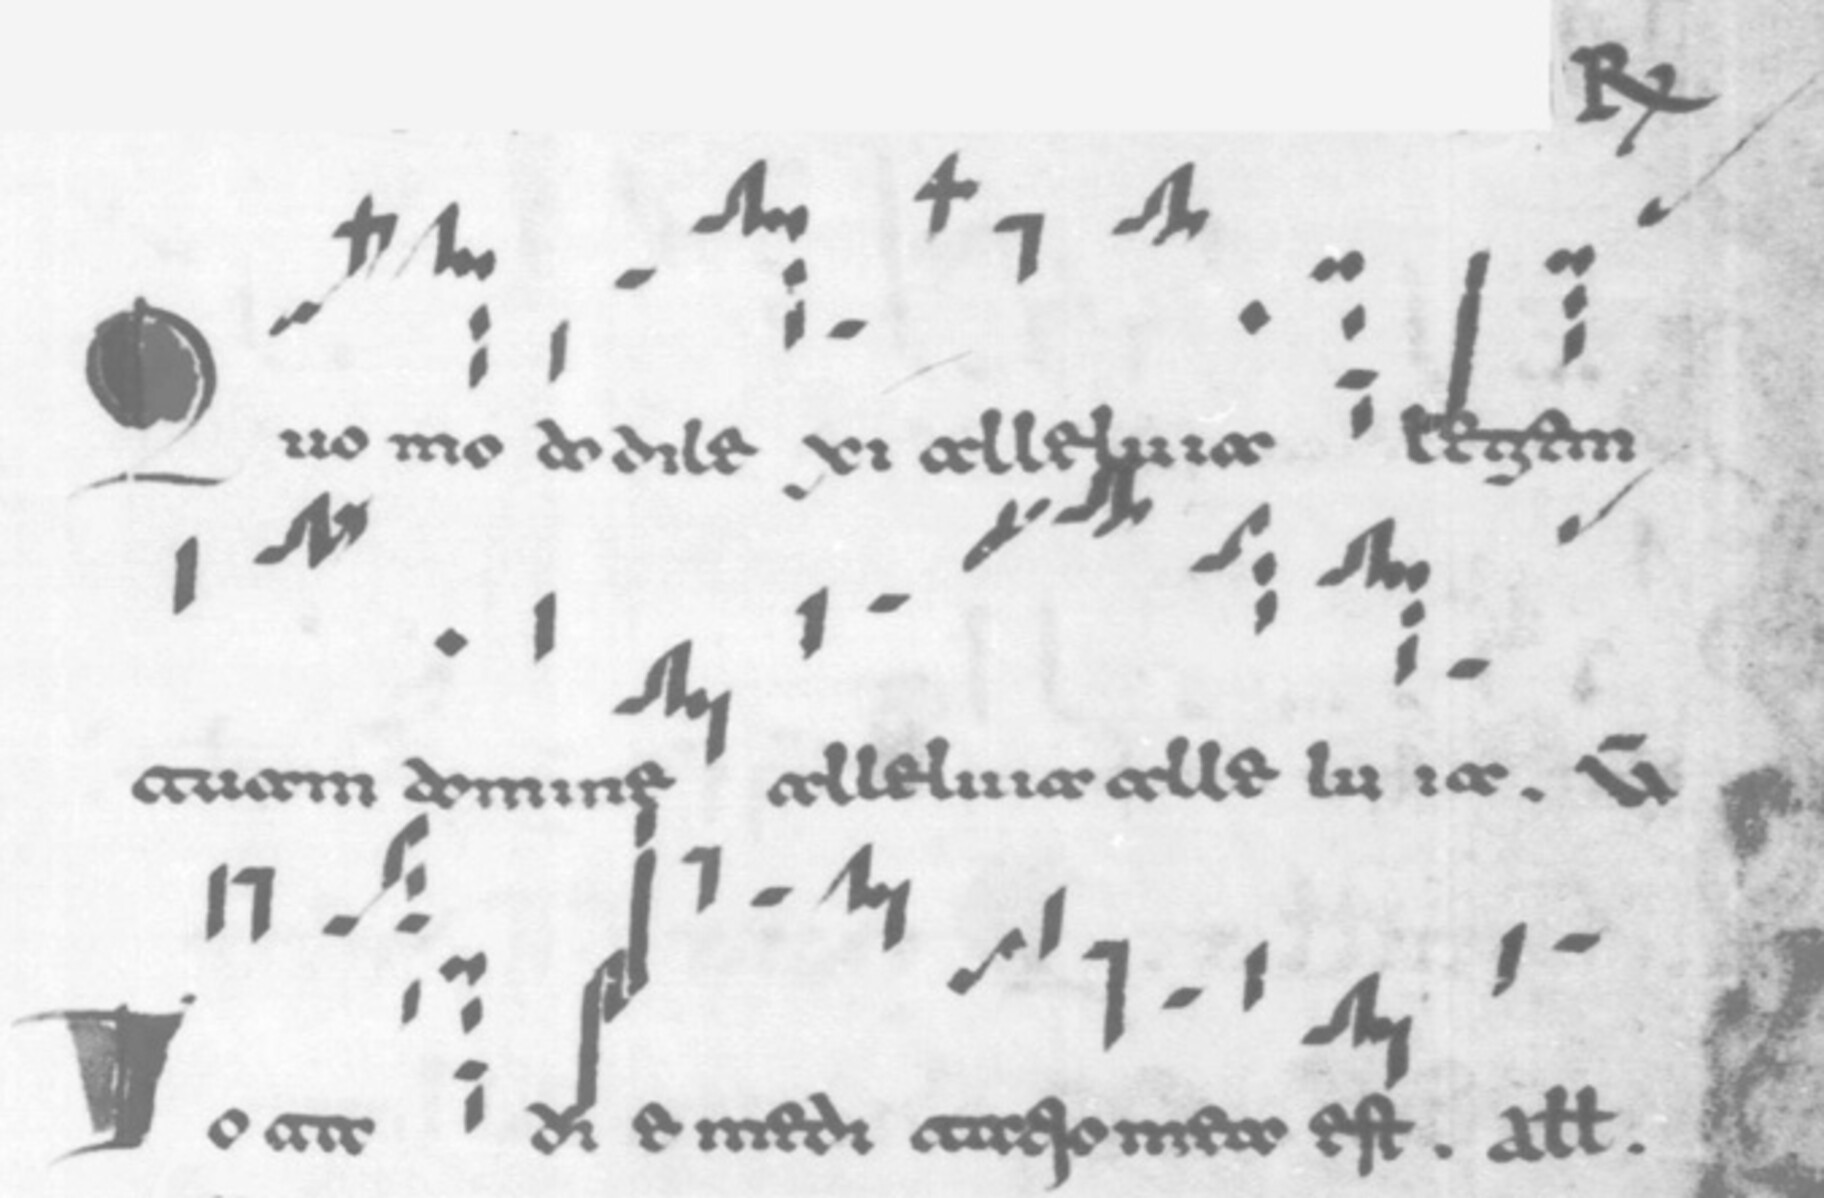 ℟
Quo mo do dile xi alleluia legem
tuam domine alleluia alle lu ia. ℣
Tota di e medi tatio mea est. All.